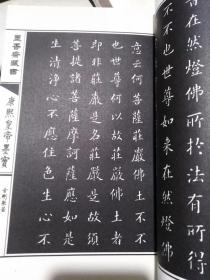 昔在然燈佛所於法有所得
不不也世尊如來在然燈佛
意云何菩薩莊嚴佛土不不
也世尊何以故莊嚴佛土者
即非莊嚴是名莊嚴是故須
菩提諸菩薩摩訶薩應如是
生清淨心不應住色生心不
墨香齋藏書
康熙皇帝墨寶